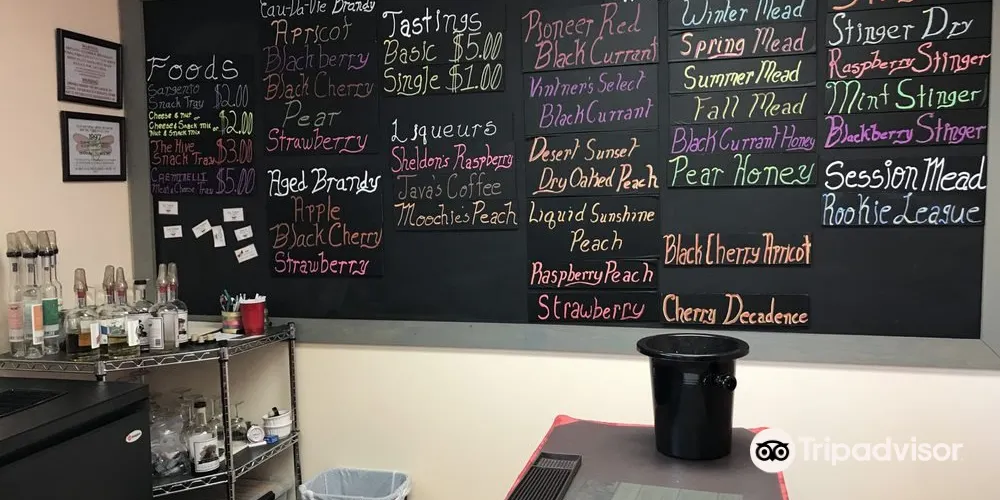 Foods
Sargento
Snack Tray $2.00
Cheese & nut or
Cheese & Snack mix or
Nut & Snack Mix $2.00
The Hive
Snack Tray $3.00
Creminelli
Meat & Cheese Tray $5.00
Eau-Da-Vie Brandy
Apricot
Blackberry
Black Cherry
Pear
Strawberry
Aged Brandy
Apple
Black Cherry
Strawberry
Tastings
Basic $5.00
Single $1.00
Liqueurs
Sheldon's Raspberry
Java's Coffee
Moochie's Peach
Pioneer Red
Black Currant
Vintner's Select
Black Currant
Desert Sunset
Dry Oaked Peach
Liquid Sunshine
Peach
Raspberry Peach
Strawberry
Winter Mead
Spring Mead
Summer Mead
Fall Mead
Black Currant Honey
Pear Honey
Black Cherry Apricot
Cherry Decadence
Stinger Dry
Raspberry Stinger
Mint Stinger
Blackberry Stinger
Session Mead
Rookie League
1997
Tripadvisor